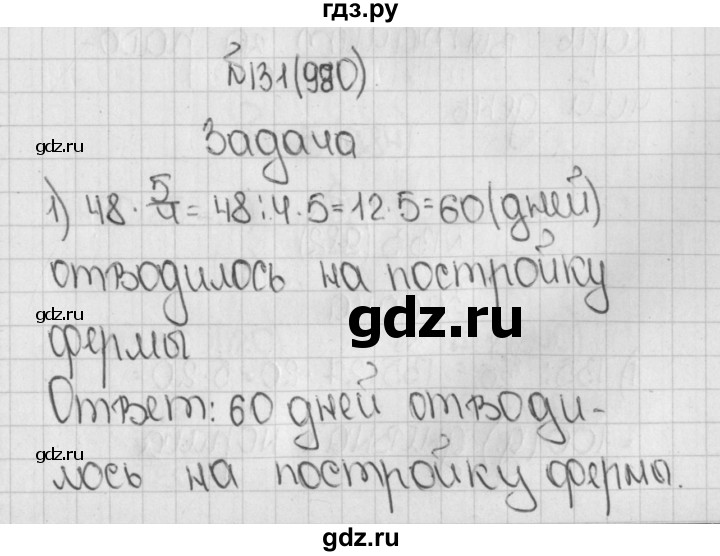 гдз.ру
№131(980)
gdz.ru
gdz.ru
Задача
1) 48 · 5/4 = 48 : 4 · 5 = 12 · 5 = 60 (дней)
отводилось на постройку
gdz.ru
gdz.ru
gdz.ru
фермы
Ответ: 60 дней отводи-
gdz.ru
gdz.ru
лось на постройку фермы.
gdz.ru